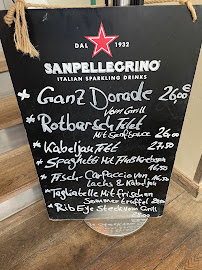 DAL 1932
SANPELLEGRINO
ITALIAN SPARKLING DRINKS
Ganz Dorade 26,00€
Vom Grill
Rotbarsch Filet
Mit Senfsauce 26,00
Kabeljau Filett 27,50
Spaghetti Mit
16,50
Fisch Carpaccio von 16,50
Lachs & Kabeljau
Tagliatelle Mit frischen
Sommertrüffel
Rib Eye Steck vom Grill